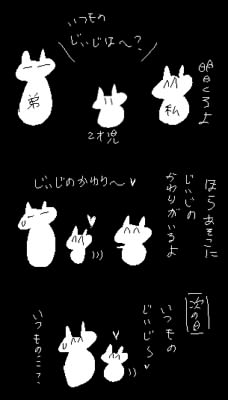 いつもの
じぃじは〜?
明日くるよ
弟
私
2才児
ほらあそこに
じぃじの
かわりがいるよ
じぃじのかわり〜♥
次の日
いつもの
じぃじ〜♥
いつものここ?